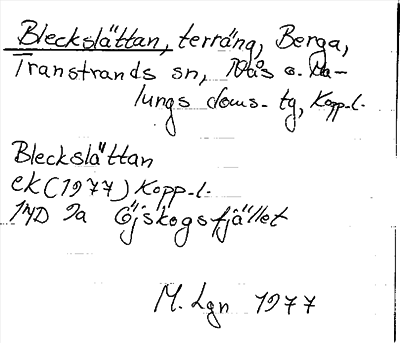 Bleckslättan, terräng, Berga,
Transtrands sn, Nås o. Ma-
lungs doms. tg, Kopp-l.
Bleckslättan
ek (1977) Kopp-l.
14D 9a Öjskogsfjället
M. Lgn 1977